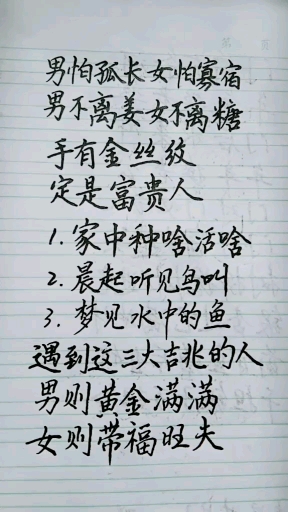 男怕孤长女怕寡宿
男不离姜女不离糖
手有金丝纹
定是富贵人
1. 家中种啥活啥
2. 晨起听见鸟叫
3. 梦见水中的鱼
遇到这三大吉兆的人
男则黄金满满
女则带福旺夫